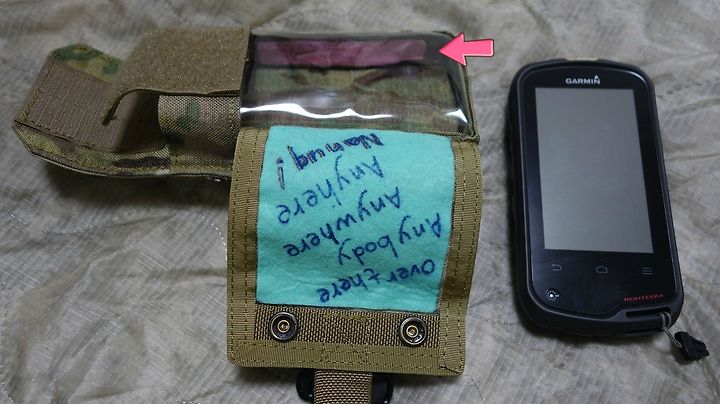 Over there
Any body
Anywhere
Anyhere
Nanuq!
GARMIN
MONTERRA